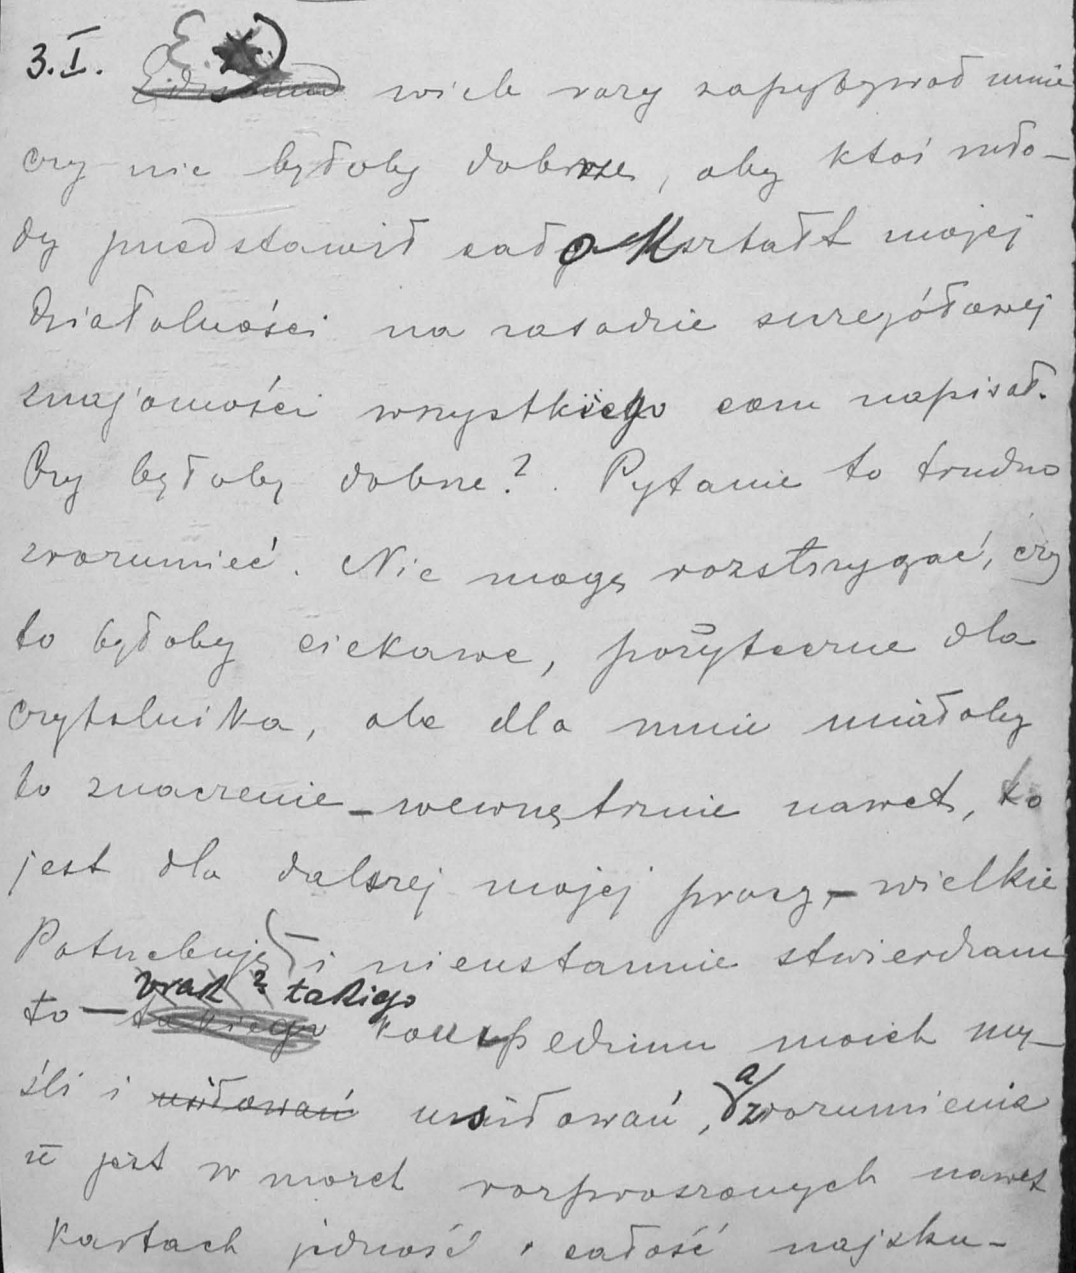 3.I. E. wiele razy zapytywał mnie
czy nie byłoby dobrze, aby ktoś mło-
dy przedstawił całokształt mojej
działalności na zasadzie szczegółowej
znajomości wszystkiego com napisał.
Czy byłoby dobrze? Pytanie to trudno
zrozumieć. Nie mogę rozstrzygać, czy
to byłoby ciekawe, pożyteczne dla
czytelnika, ale dla mnie miałoby
to znaczenie – wewnętrznie nawet, to
jest dla dalszej mojej pracy, – wielkie
Potrzebuję i nieustannie stwierdzam
to – brak? takiego
takiego kompedium moich my-
śli i usiłowań usiłowań, a zrozumienia
iż jest w moich rozproszonych nawet
kartach jedność i całość najsku-